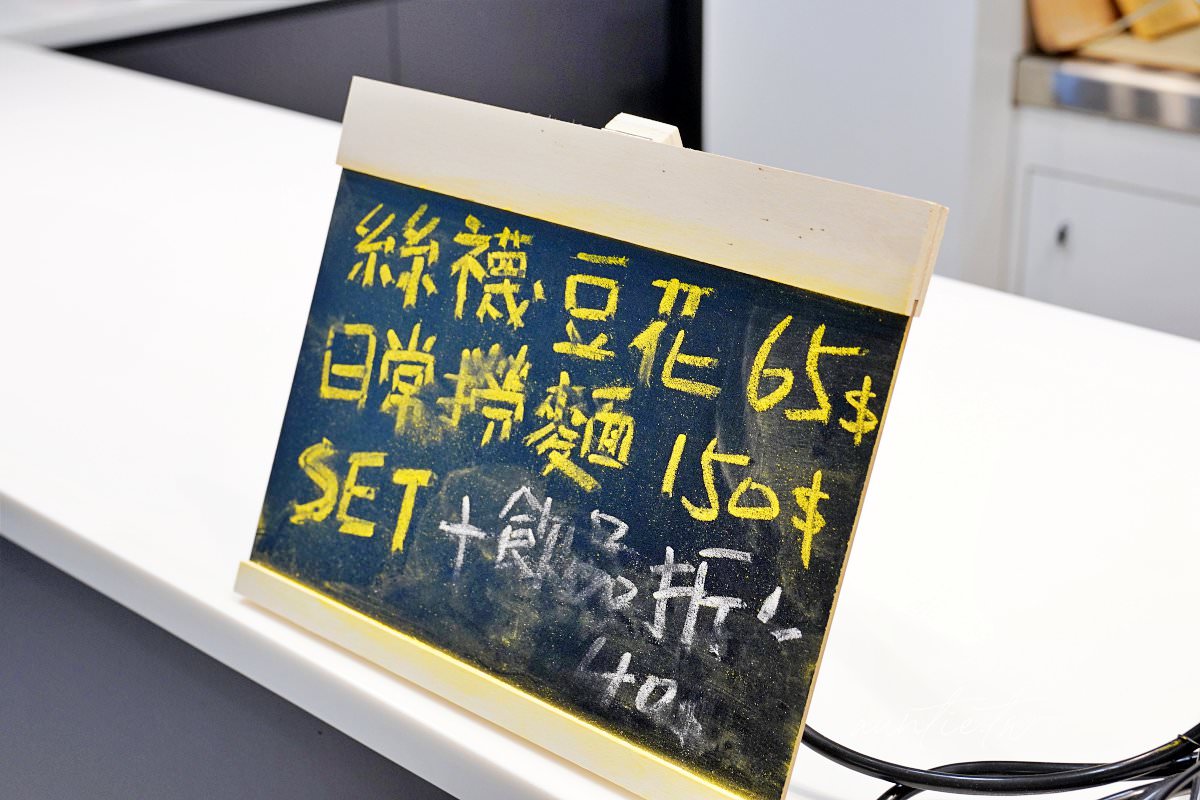 絲襪豆花 65$
日常撈麵 150$
SET +飲品折
40$
auntie.tw